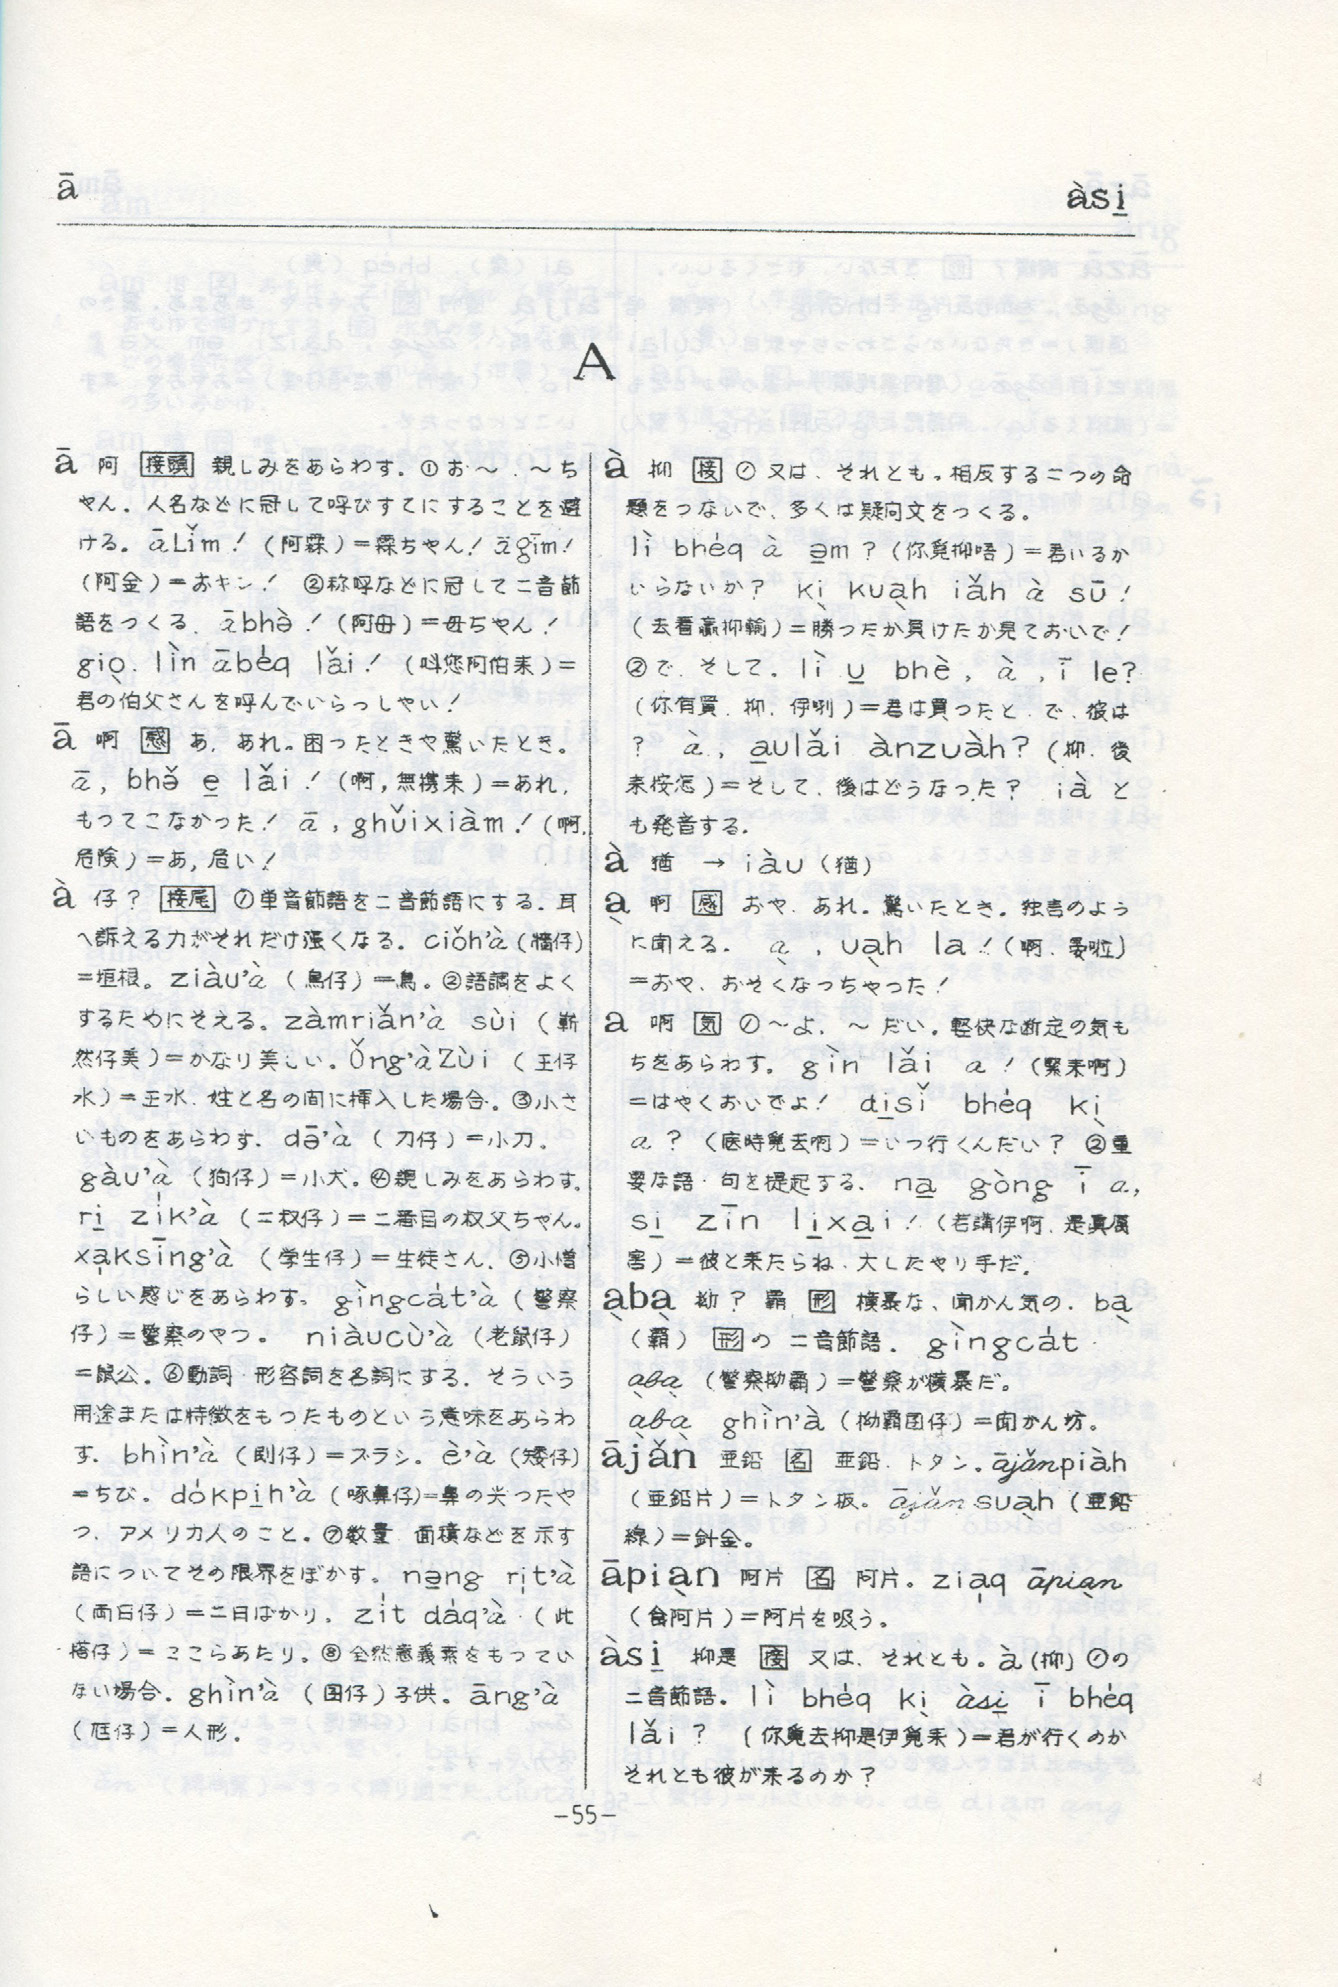 ā
àsi̱
A
ā 阿 [接頭] 親しみをあらわす。①お〜、〜ち
やん。人名などに冠して呼びすてにすることを避
ける。āLǐm！（阿霖）＝霖ちゃん！āgīm！
（阿金）＝おキン！ ②称呼などに冠して二音節
語をつくる. ābhè！（阿母）＝母ちゃん！
gio̖. lìn ābéq lǎi！（叫您阿伯来）＝
君の伯父さんを呼んでいらっしゃい！
ā 啊 [感] あ, あれ。困ったときや驚いたとき。
ā, bhə̌ e̱ lǎi！（啊,無携来）＝あれ,
もってこなかった！ā, ghǔixiàm！（啊,
危険）＝あ, 危い！
à 仔？ [接尾] ①単音節語を二音節語にする. 耳
へ訴える力がそれだけ強くなる. ciǒh'à（牆仔）
＝垣根。ziàu'à（鳥仔）＝鳥。②語調をよく
するためにそえる。zàmriǎn'à sùi（嶄
然仔美）＝かなり美しい。Ǒng'àZùi（王仔
水）＝王水. 姓と名の間に挿入した場合。③小さ
いものをあらわす. də̄'à（刀仔）＝小刀.
gàu'à（狗仔）＝小犬。④親しみをあらわす.
ri̱ zi̍k'à（二叔仔）＝二番目の叔父ちゃん。
xa̩ksīng'à（学生仔）＝生徒さん. ⑤小僧
らしい感じをあらわす. gìngcát'à（警察
仔）＝警察のやつ。 niàucù'à（老鼠仔）
＝鼠公。⑥動詞・形容詞を名詞にする. そういう
用途または特徴をもつたものという意味をあらわ
す. bhìn'à（刷仔）＝ブラシ。è'à（矮仔）
＝ちび。dókpi̱h'à（啄鼻仔）＝鼻の尖つたや
つ. アメリカ人のこと。⑦数量. 面積などを示す
語についてその限界をぼかす. nə̱ng ri̩t'à
（両日仔）＝二日ばかり. zít dáq'à（此
搭仔）＝ここらあたり。⑧全然意義素をもってい
ない場合. ghìn'à（囝仔）子供。āng'à
（尫仔）＝人形.
à 抑 [接] ①又は. それとも。相反する二つの命
題をつないで、多くは疑問文をつくる。
lì bhéq à ə̱m？（你覓抑唔）＝君いるか
いらないか？ ki̖ kua̖h iǎh à sū！
（去看贏抑輸）＝勝つたか負けたか見ておいで！
②で. そして. lì u̱ bhè, à, ī le?
（你有買. 抑. 伊咧）＝君は買つたと. で. 彼は
？ à, a̱ulǎi ànzuàh?（抑. 後
来按怎）＝そして. 後はどうなった？ ià と
も発音する.
à 猶 → iàu（猶）
a̖ 啊 [感] おや. あれ。驚いたとき。独言のよう
に聞える. a̖, ua̖h la！（啊. 晏啦）
＝おや. おそくなっちゃった！
a 啊 [気] ①〜よ. 〜だい. 軽快な断定の気も
ちをあらわす. gìn lǎi a！（緊来啊）
＝はやくおいでよ！ di̱sǐ bhéq ki̖
a？（底時覓去啊）＝いつ行くんだい？ ②重
要な語・句を提起する. na̱ gòng ī a,
si̱ zīn li̱xa̱i！（若講伊啊. 是真厲
害）＝彼と来たらね. 大したやり手だ.
a̖ba̖ 拗？覇 [形] 横暴な、聞かん気の. ba̖
（覇）[形]の 二音節語. gìngcát
a̖ba̖（警察拗覇）＝警察が横暴だ。
a̖ba̖ ghìn'à（拗覇囝仔）＝聞かん坊。
ājǎn 亜鉛 [名] 亜鉛. トタン。ājǎnpiàh
（亜鉛片）＝トタン板。ājǎnsua̖h（亜鉛
線）＝針金。
āpia̖n 阿片 [名] 阿片。zia̩q āpia̖n
（食阿片）＝阿片を吸う。
àsi̱ 抑是 [接] 又は. それとも。à（抑）①の
二音節語. lì bhéq ki̖ àsi̱ ī bhéq
lǎi？（你覓去抑是伊覓来）＝君が行くのか
それとも彼が来るのか？
—55—